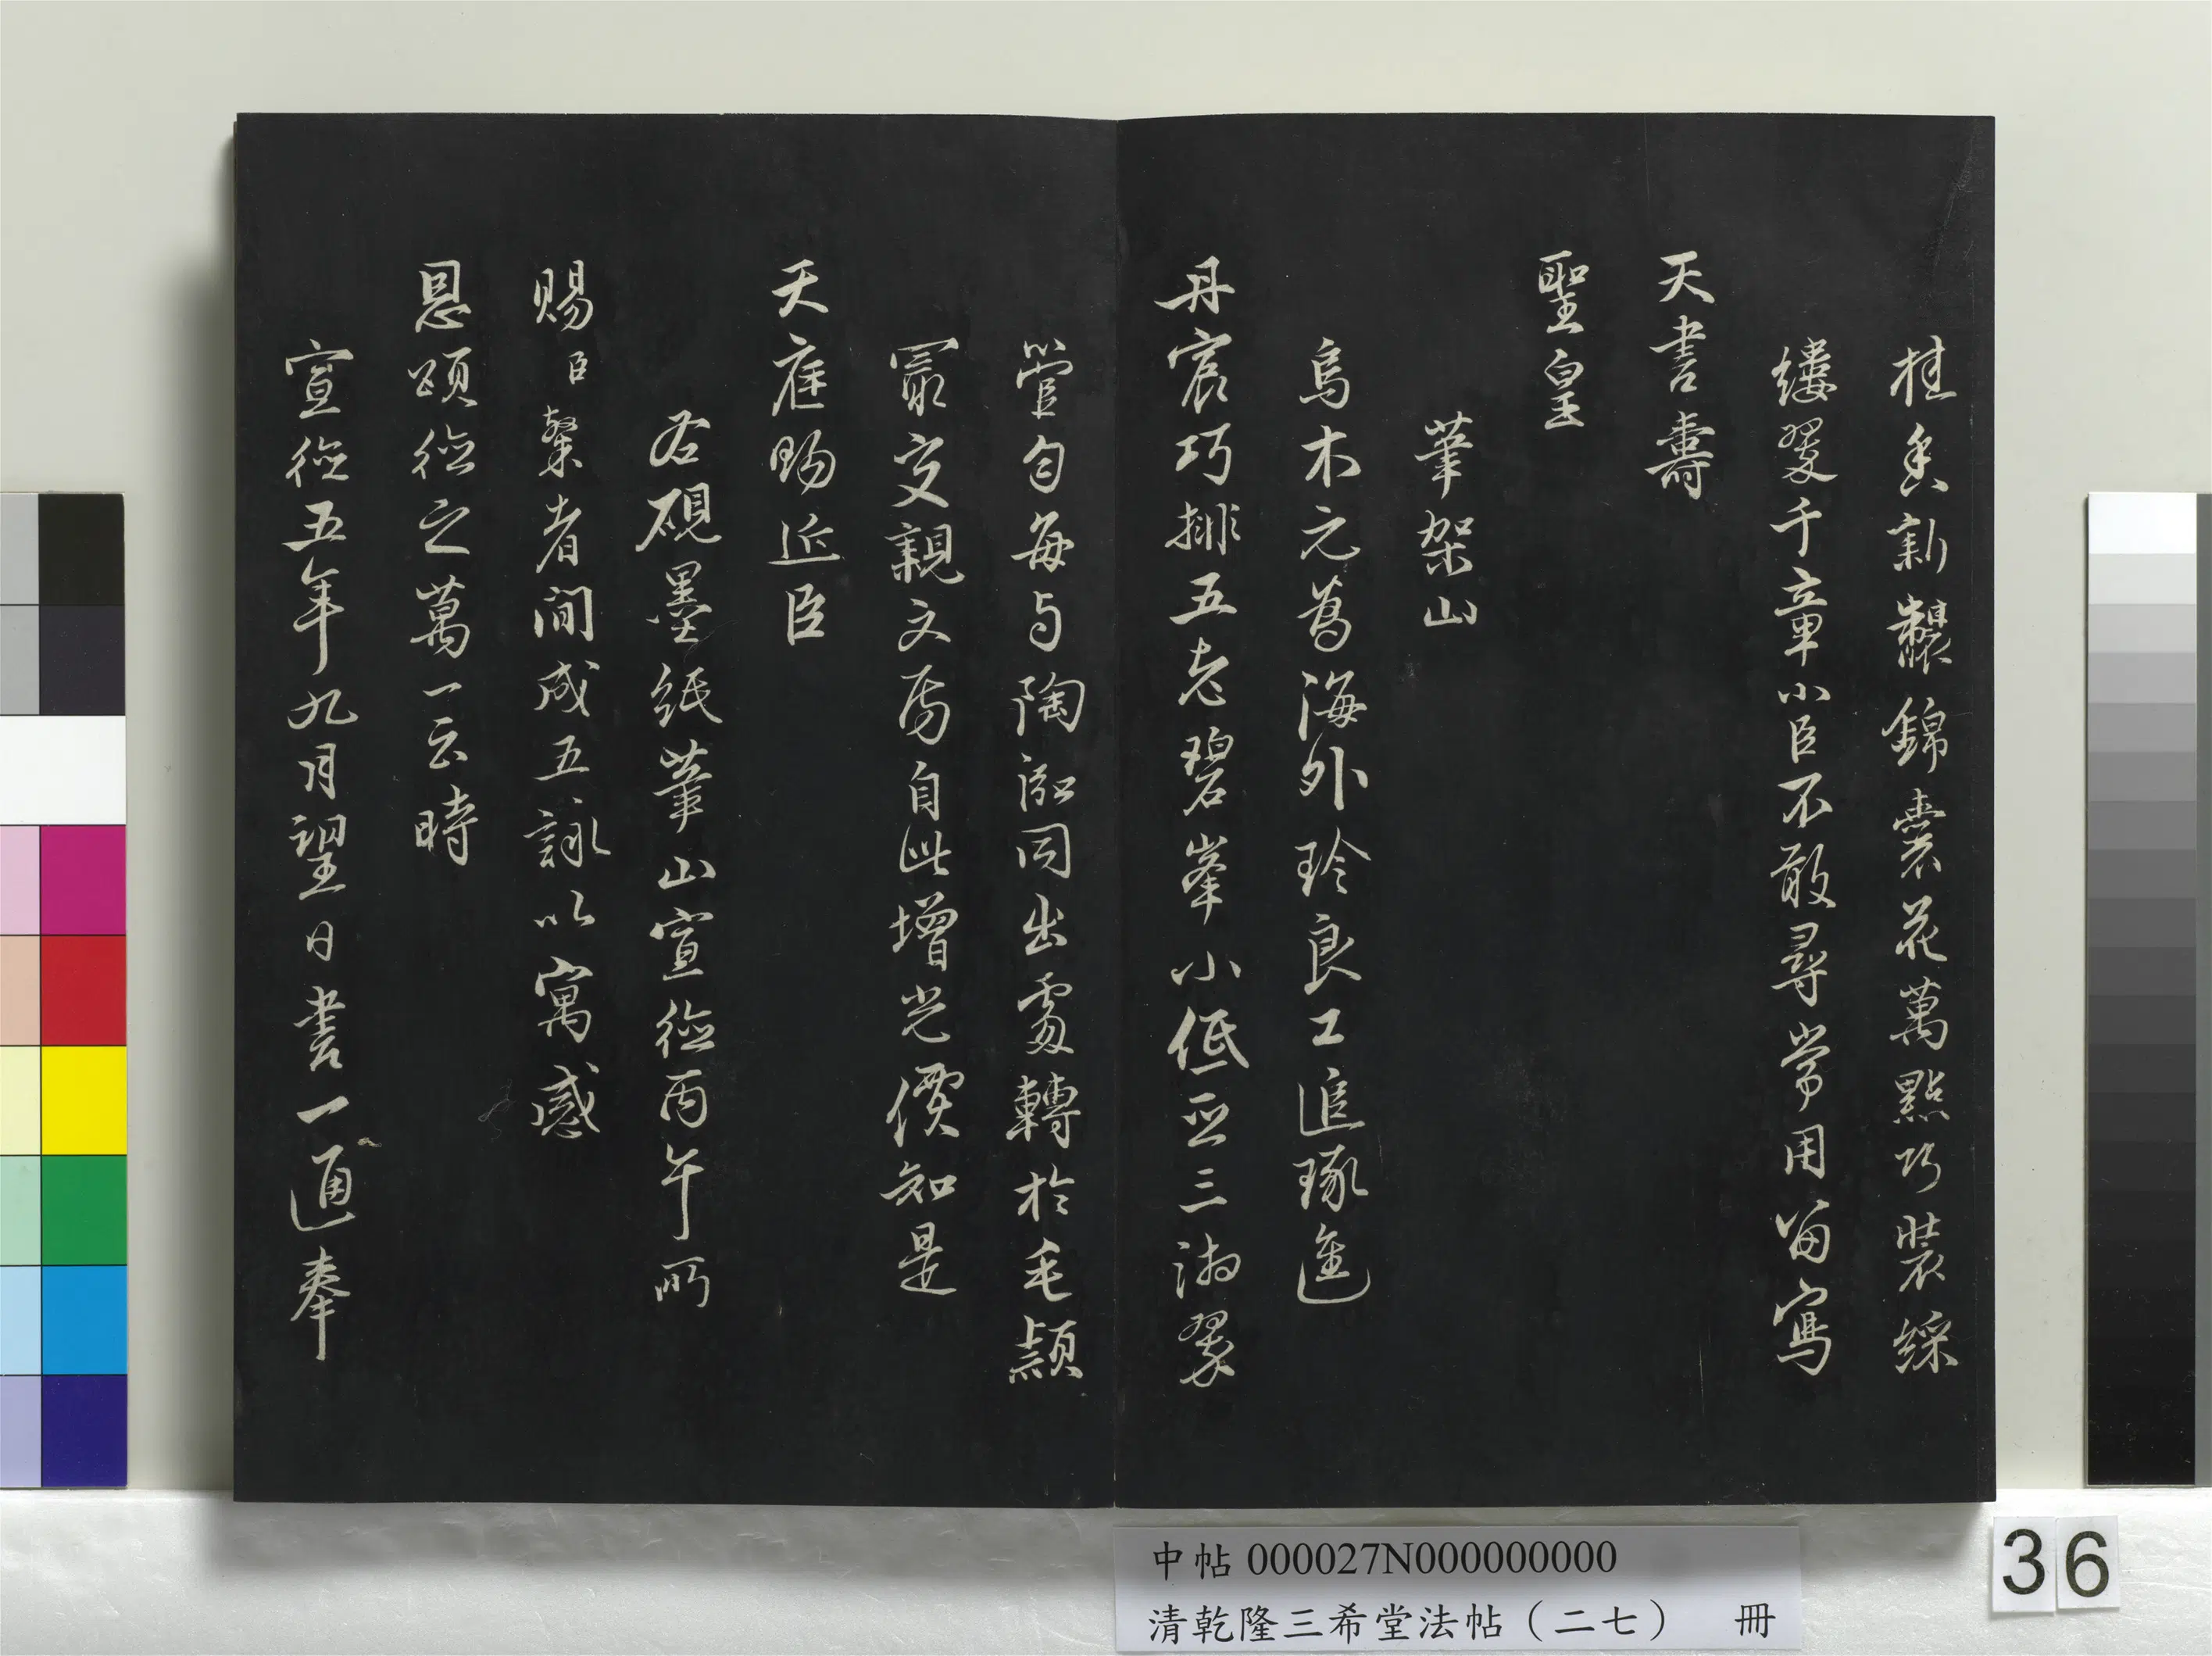 桂香新釀錦囊花萬點巧裝綵
縷翠千章小臣不敢尋常用留寫
天書壽
聖皇
筆架山
烏木元為海外珍良工追琢進
丹宸巧排五老碧峯小低亞三湘翠
管勻每与陶泓同出處轉於毛穎
冣交親文房自此增光價知是
天庭賜近臣
右硯墨紙筆山宣德丙午所
賜臣粲者間成五詠以寓感
恩頌德之萬一云時
宣德五年九月望日書一通奉
中帖 000027N000000000
清乾隆三希堂法帖（二七） 冊
36